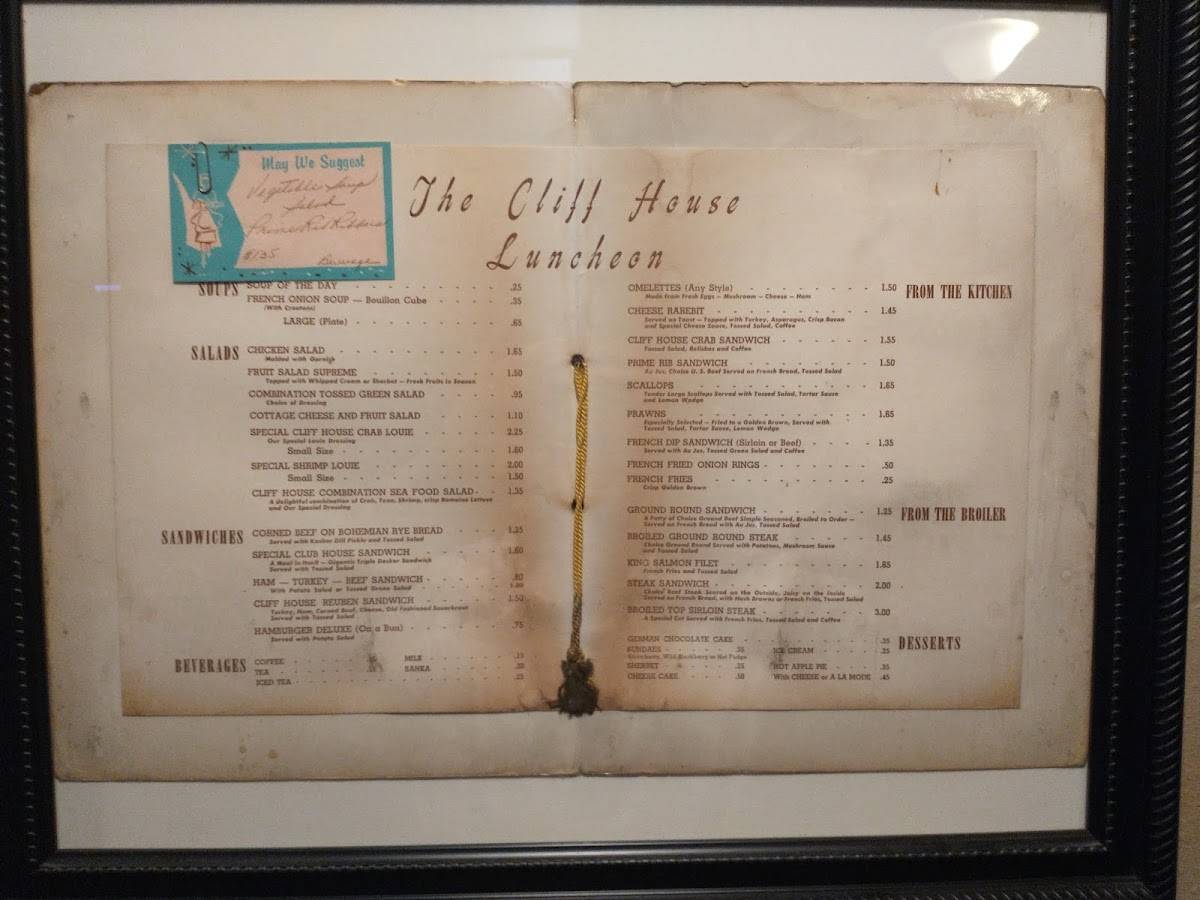 May We Suggest
Vegetable Soup
Salad
Prime Rib
$1.35 Beverage
The Cliff House
Luncheon
SOUPS
SOUP OF THE DAY .25
FRENCH ONION SOUP — Bouillon Cube .35
(With Croutons)
LARGE (Plate) .65
SALADS
CHICKEN SALAD 1.65
Molded with Garnish
FRUIT SALAD SUPREME 1.50
Topped with Whipped Cream or Sherbet — Fresh Fruits in Season
COMBINATION TOSSED GREEN SALAD .95
Choice of Dressing
COTTAGE CHEESE AND FRUIT SALAD 1.10
SPECIAL CLIFF HOUSE CRAB LOUIE 2.25
Our Special Louie Dressing
Small Size 1.60
SPECIAL SHRIMP LOUIE 2.00
Small Size 1.50
CLIFF HOUSE COMBINATION SEA FOOD SALAD 1.35
A delightful combination of Crab, Tuna, Shrimp, crisp Romaine Lettuce
and Our Special Dressing
SANDWICHES
CORNED BEEF ON BOHEMIAN RYE BREAD 1.25
Served with Kosher Dill Pickle and Tossed Salad
SPECIAL CLUB HOUSE SANDWICH 1.60
A Meal in Itself — Gigantic Triple Decker Sandwich
Served with Tossed Salad
HAM — TURKEY — BEEF SANDWICH
With Potato Salad or Tossed Green Salad
CLIFF HOUSE REUBEN SANDWICH 1.50
Turkey, Ham, Corned Beef, Cheese, Old Fashioned Sauerkraut
Served with Tossed Salad
HAMBURGER DELUXE (On a Bun) .75
Served with Potato Salad
BEVERAGES
COFFEE
TEA
ICED TEA
MILK .15
SANKA .20
.25
OMELETTES (Any Style) 1.50
Made from Fresh Eggs — Mushroom — Cheese — Ham
FROM THE KITCHEN
CHEESE RAREBIT 1.45
Served on Toast — Topped with Turkey, Asparagus, Crisp Bacon
and Special Cheese Sauce, Tossed Salad, Coffee
CLIFF HOUSE CRAB SANDWICH 1.55
Tossed Salad, Relishes and Coffee
PRIME RIB SANDWICH 1.50
Au Jus, Choice U. S. Beef Served on French Bread, Tossed Salad
SCALLOPS 1.65
Tender Large Scallops Served with Tossed Salad, Tartar Sauce
and Lemon Wedge
PRAWNS 1.65
Especially Selected — Fried to a Golden Brown, Served with
Tossed Salad, Tartar Sauce, Lemon Wedge
FRENCH DIP SANDWICH (Sirloin or Beef) 1.35
Served with Au Jus, Tossed Green Salad and Coffee
FRENCH FRIED ONION RINGS .50
FRENCH FRIES .25
Crisp Golden Brown
GROUND ROUND SANDWICH 1.25
A Patty of Choice Ground Beef Simple Seasoned, Broiled to Order —
Served on French Bread with Au Jus, Tossed Salad
FROM THE BROILER
BROILED GROUND ROUND STEAK 1.45
Choice Ground Round Served with Potatoes, Mushroom Sauce
and Tossed Salad
KING SALMON FILET 1.85
French Fries and Tossed Salad
STEAK SANDWICH 2.00
Choice Beef Steak Seared on the Outside, Juicy on the Inside
Served on French Bread, with Hash Browns or French Fries, Tossed Salad
BROILED TOP SIRLOIN STEAK 3.00
A Special Cut Served with French Fries, Tossed Salad and Coffee
DESSERTS
GERMAN CHOCOLATE CAKE .35
SUNDAES .35
Wild Blackberry or Hot Fudge
SHERBET .25
CHEESE CAKE .50
ICE CREAM .25
HOT APPLE PIE .35
With CHEESE or A LA MODE .45